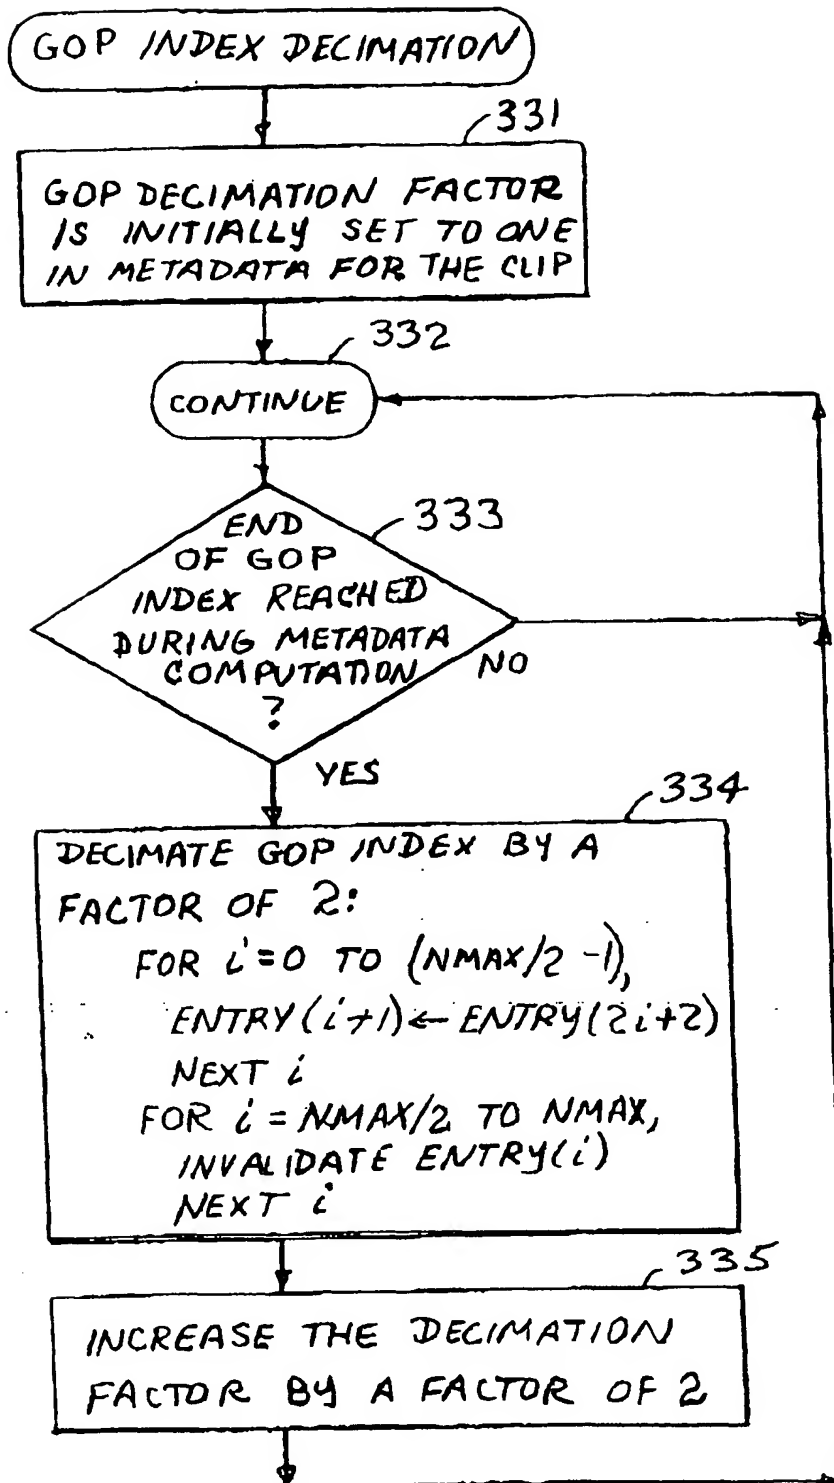 GOP INDEX DECIMATION
331
GOP DECIMATION FACTOR
IS INITIALLY SET TO ONE
IN METADATA FOR THE CLIP
332
CONTINUE
333
END
OF GOP
INDEX REACHED
DURING METADATA
COMPUTATION
?
NO
YES
334
DECIMATE GOP INDEX BY A
FACTOR OF 2:
FOR i=0 TO (NMAX/2 -1),
ENTRY(i+1)←ENTRY(2i+2)
NEXT i
FOR i=NMAX/2 TO NMAX,
INVALIDATE ENTRY(i)
NEXT i
335
INCREASE THE DECIMATION
FACTOR BY A FACTOR OF 2